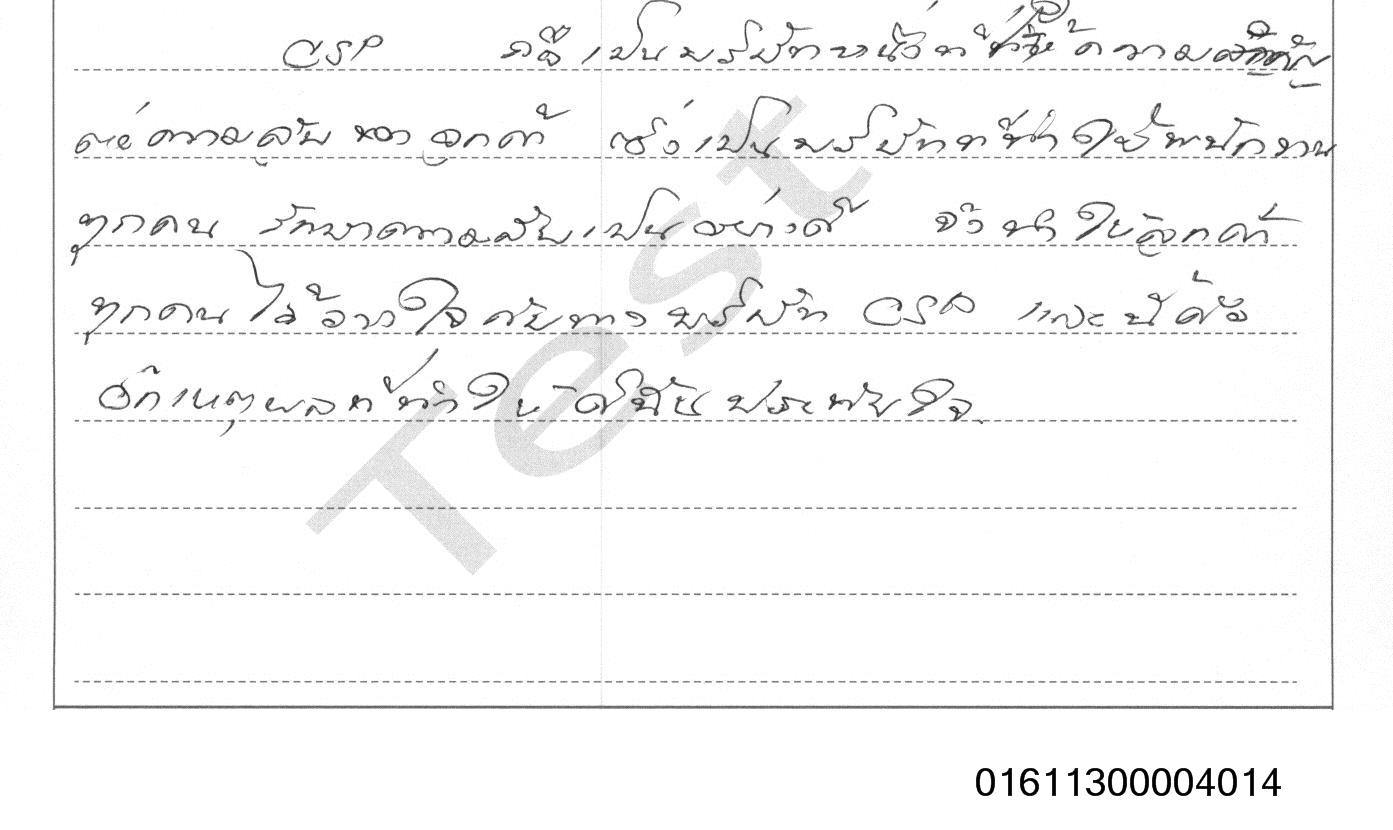 CSP คือ เป็นบริษัทหนึ่งที่ให้ความสำคัญ
ต่อความลับของลูกค้า ซึ่งเป็นบริษัทที่ทำให้พนักงาน
ทุกคน รักษาความลับเป็นอย่างดี จึงทำให้ลูกค้า
ทุกคนไว้วางใจกับทางบริษัท CSP และนี่คือ
อีกเหตุผลที่ทำให้ดิฉันประทับใจ
Test
01611300004014